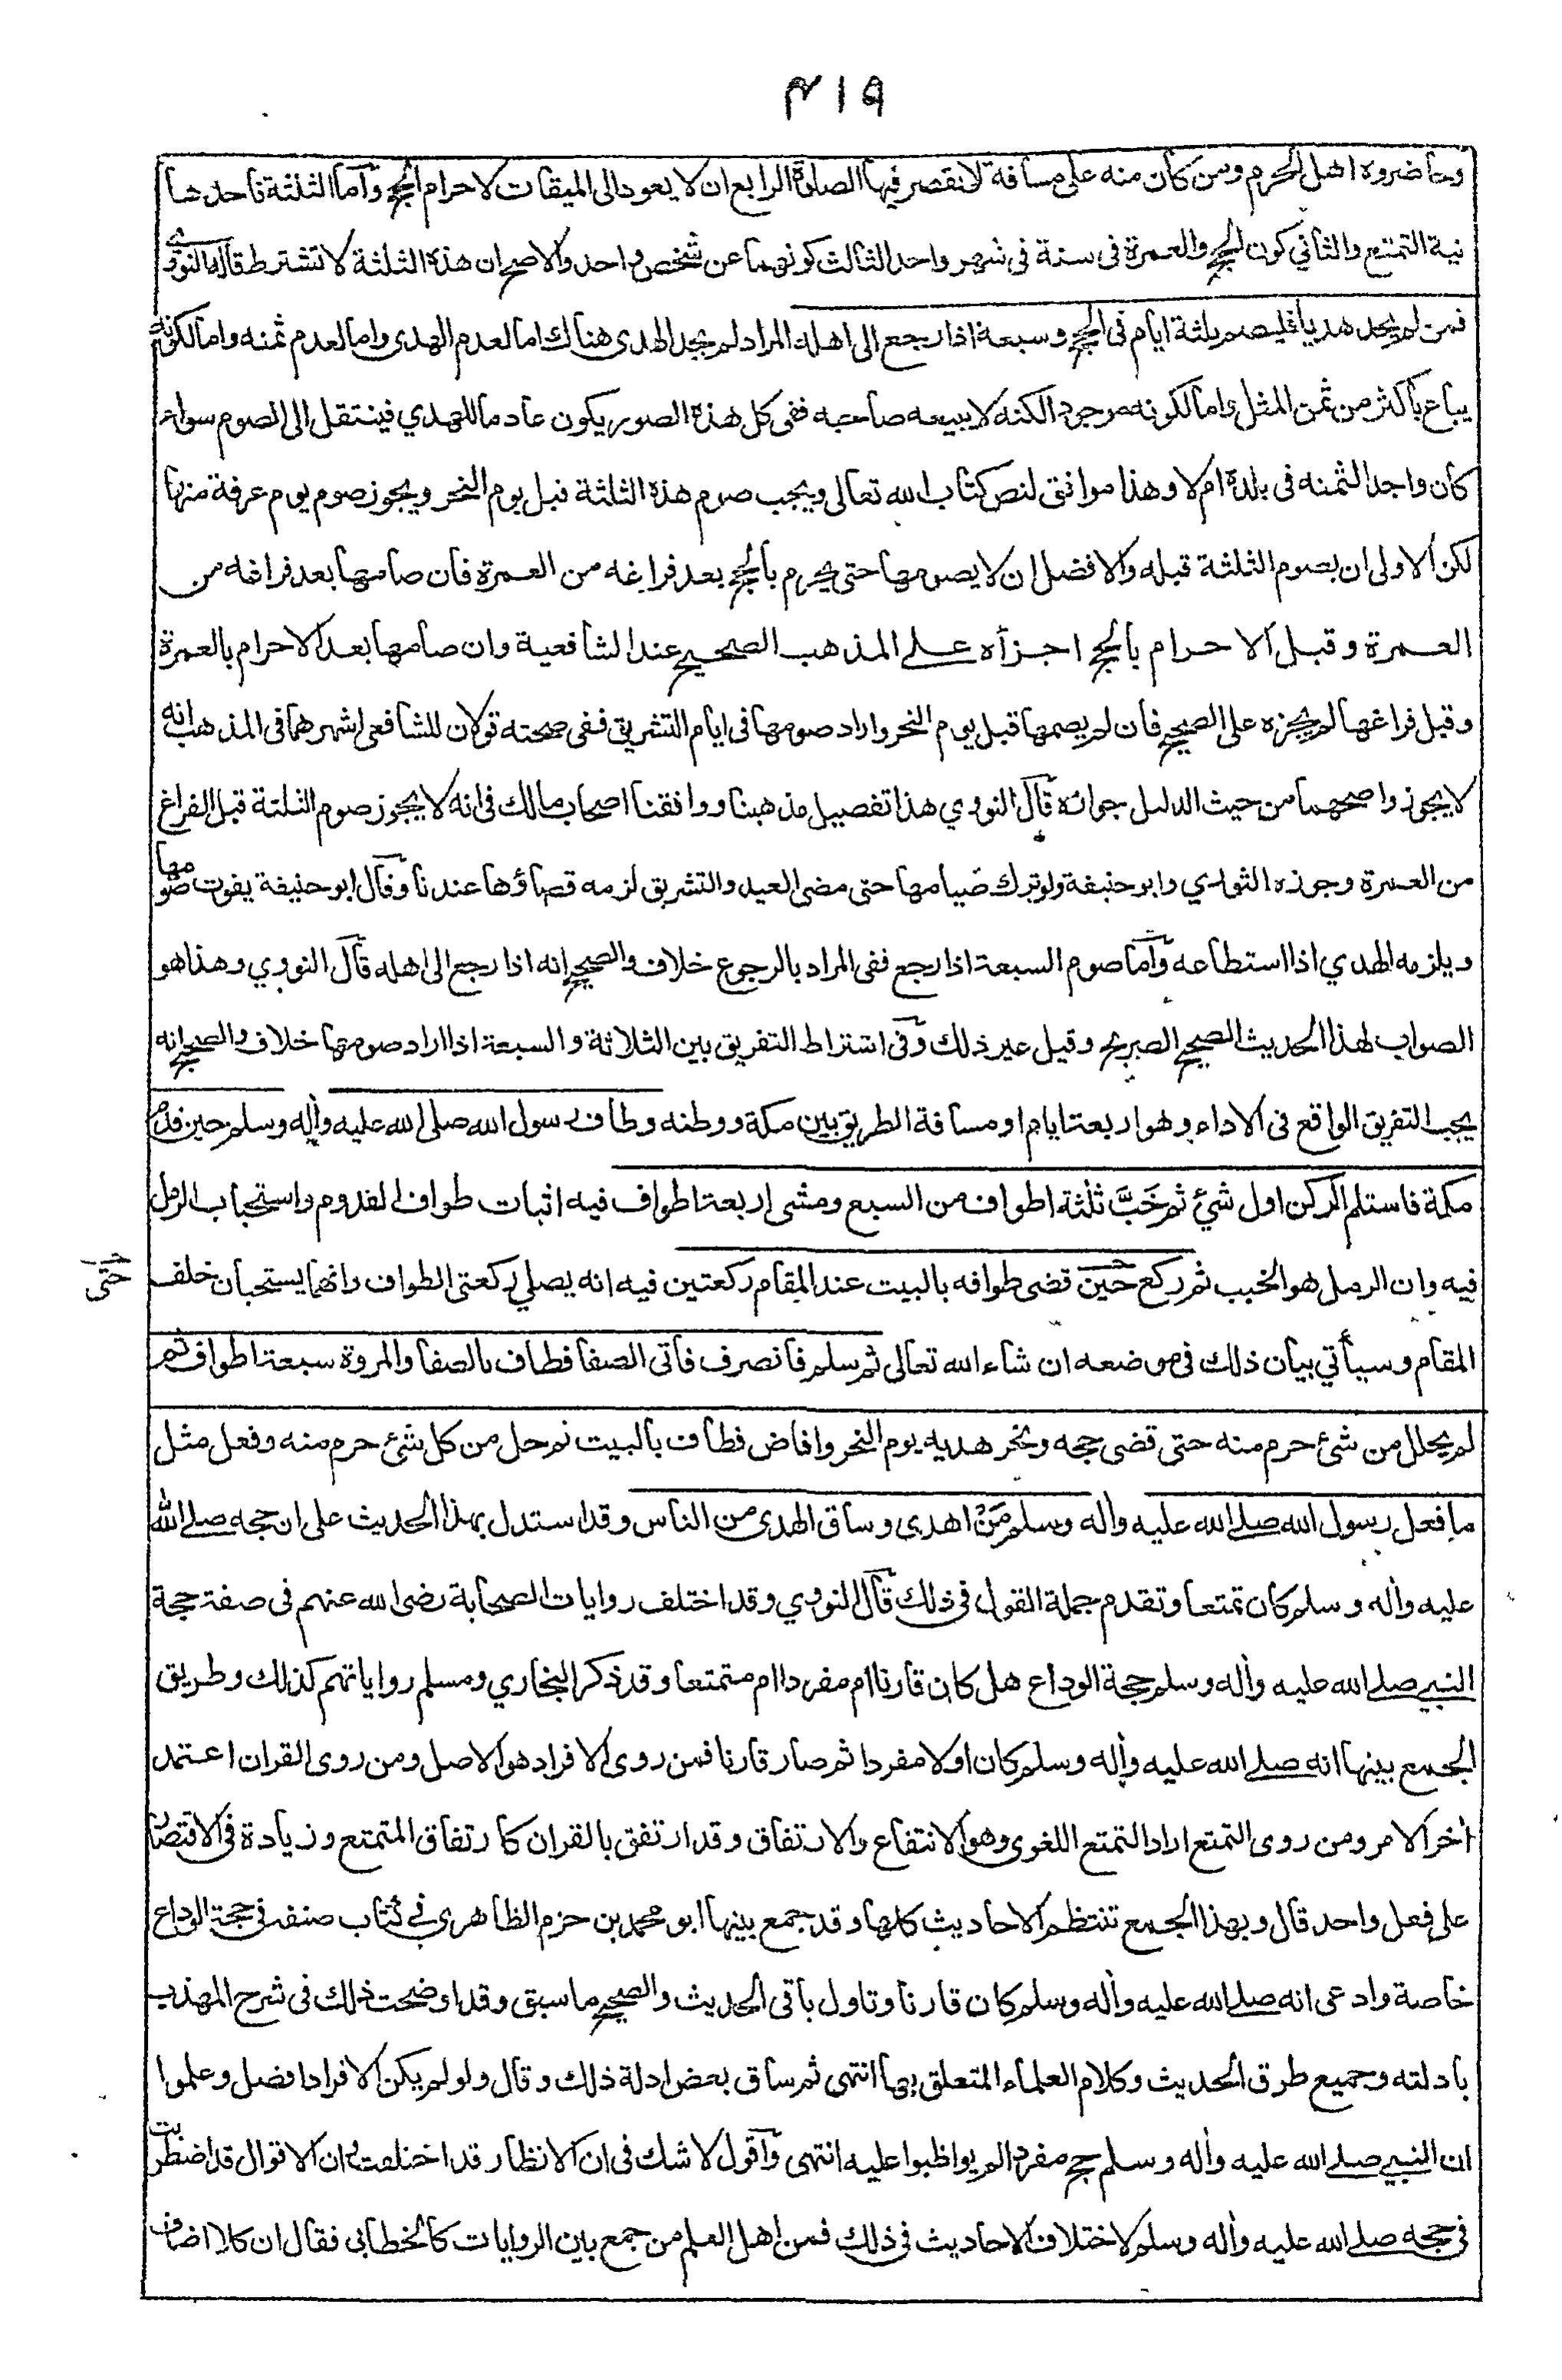 ٤١٩
وحاضروه اهل الحرم ومن كان منه على مسافة لا تقصر فيها الصلوة الرابع ان لا يعود الى الميقات لاحرام الحج وأما الثلثة فاحدها
نية التمتع والثاني كون الحج والعمرة فى سنة فى شهر واحد الثالث كونهما عن شخص واحد والاصح ان هذه الثلثة لا تشترط قاله النووى
فمن لم يجد هديا فليصم ثلثة ايام فى الحج وسبعة اذا رجع الى اهله المراد لم يجد الهدى هناك اما لعدم الهدى واما لعدم ثمنه واما لكونه
يباع بأكثر من ثمن المثل واما لكونه موجودا لكنه لا يبيعه صاحبه ففى كل هذه الصور يكون عادما للهدي فينتقل الى الصوم سواء
كان واجدا لثمنه فى بلده ام لا وهذا موافق لنص كتاب الله تعالى ويجب صوم هذه الثلثة قبل يوم النحر ويجوز صوم يوم عرفة منها
لكن الاولى ان يصوم الثلثة قبله والافضل ان لا يصومها حتى يحرم بالحج بعد فراغه من العمرة فان صامها بعد فراغه من
العمرة وقبل الاحرام بالحج اجزأه على المذهب الصحيح عند الشافعية وان صامها بعد الاحرام بالعمرة
وقبل فراغها لم يجزه على الصحيح فان لم يصمها قبل يوم النحر واراد صومها فى ايام التشريق ففى صحته قولان للشافعى اشهرهما فى المذهب انه
لا يجوز واصحهما من حيث الدليل جوازه قال النووي هذا تفصيل مذهبنا ووافقنا اصحاب مالك فى انه لا يجوز صوم الثلثة قبل الفراغ
من العمرة وجوزه الثوري وابو حنيفة ولو ترك صيامها حتى مضى العيد والتشريق لزمه قضاؤها عندنا وقال ابو حنيفة يفوت صومها
ويلزمه الهدي اذا استطاعه وأما صوم السبعة اذا رجع ففى المراد بالرجوع خلاف والصحيح انه اذا رجع الى اهله قال النووي وهذا هو
الصواب لهذا الحديث الصحيح الصريح وقيل غير ذلك وفى اشتراط التفريق بين الثلاثة والسبعة اذا اراد صومها خلاف والصحيح انه
يجب التفريق الواقع فى الاداء وهو اربعة ايام او مسافة الطريق بين مكة ووطنه وطاف رسول الله صلى الله عليه وأله وسلم حين قدم
مكة فاستلم الركن اول شئ ثم خَبَّ ثلثة اطواف من السبع ومشى اربعة اطواف فيه اثبات طواف القدوم واستحباب الرمل
فيه وان الرمل هو الخبب ثم ركع حين قضى طوافه بالبيت عند المقام ركعتين فيه انه يصلي ركعتى الطواف وانهما يستحبان خلف
حتى
المقام وسيأتي بيان ذلك فى موضعه ان شاء الله تعالى ثم سلم فانصرف فاتى الصفا فطاف بالصفا والمروة سبعة اطواف ثم
لم يحلل من شئ حرم منه حتى قضى حجه ونحر هديه يوم النحر وافاض فطاف بالبيت ثم حل من كل شئ حرم منه وفعل مثل
ما فعل رسول الله صلى الله عليه وأله وسلم مَنْ اهدى وساق الهدى من الناس وقد استدل بهذا الحديث على ان حجه صلى الله
عليه وأله وسلم كان تمتعا وتقدم جملة القول فى ذلك قال النووي وقد اختلف روايات الصحابة رضى الله عنهم فى صفة حجة
النبي صلى الله عليه وأله وسلم حجة الوداع هل كان قارنا ام مفردا ام متمتعا وقد ذكر البخاري ومسلم رواياتهم كذلك وطريق
الجمع بينها انه صلى الله عليه وأله وسلم كان اولا مفردا ثم صار قارنا فمن روى الافراد هو الاصل ومن روى القران اعتمد
أخر الامر ومن روى التمتع اراد التمتع اللغوى وهو الانتفاع والارتفاق وقد ارتفق بالقران كارتفاق المتمتع وزيادة فى الاقتصار
على فعل واحد قال وبهذا الجمع تنتظم الاحاديث كلها وقد جمع بينها ابو محمد بن حزم الظاهرى في كتاب صنفه فى حجة الوداع
خاصة وادعى انه صلى الله عليه وأله وسلم كان قارنا وتاول باقى الحديث والصحيح ما سبق وقد اوضحت ذلك فى شرح المهذب
بأدلته وجميع طرق الحديث وكلام العلماء المتعلق بها انتهى ثم ساق بعض ادلة ذلك وقال ولو لم يكن الافراد افضل وعلموا
ان النبي صلى الله عليه وأله وسلم حج مفردا لم يواظبوا عليه انتهى وأقول لا شك فى ان الانظار قد اختلفت وان الاقوال قد اضطربت
فى حجه صلى الله عليه وأله وسلم لاختلاف الاحاديث فى ذلك فمن اهل العلم من جمع بين الروايات كالخطابى فقال ان كلا اضاف